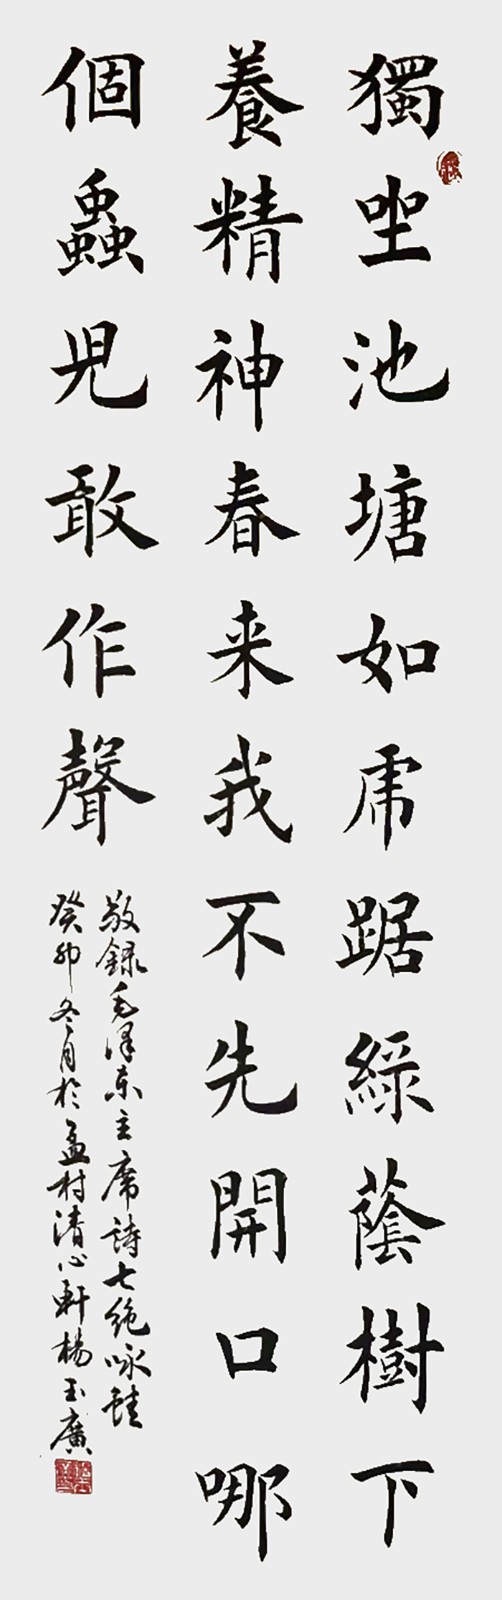 獨坐池塘如虎踞綠蔭樹下
養精神春来我不先開口哪
個蟲児敢作聲
敬錄毛泽东主席詩七绝咏蛙
癸卯冬月於孟村清心軒楊玉廣